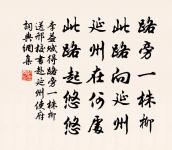 路旁一株柳
此路向延州
延州在何處
此路起悠悠
李益賦得路旁一株柳
送邢校書赴延州使府
詞典網集